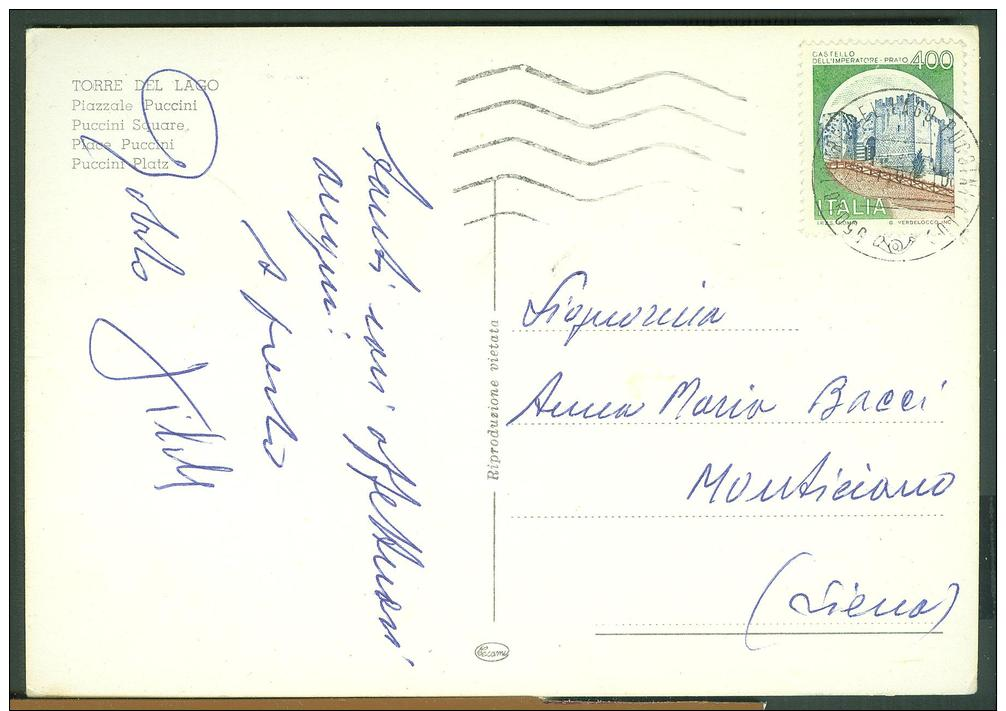 TORRE DEL LAGO
Piazzale Puccini
Puccini Square
Place Puccini
Puccini Platz
Tanti cari affettuosi
auguri!
A presto
Carlo
CASTELLO
DELL'IMPERATORE - PRATO 400
ITALIA
Riproduzione vietata
Signorina
Anna Maria Bacci
Monticiano
(Siena)